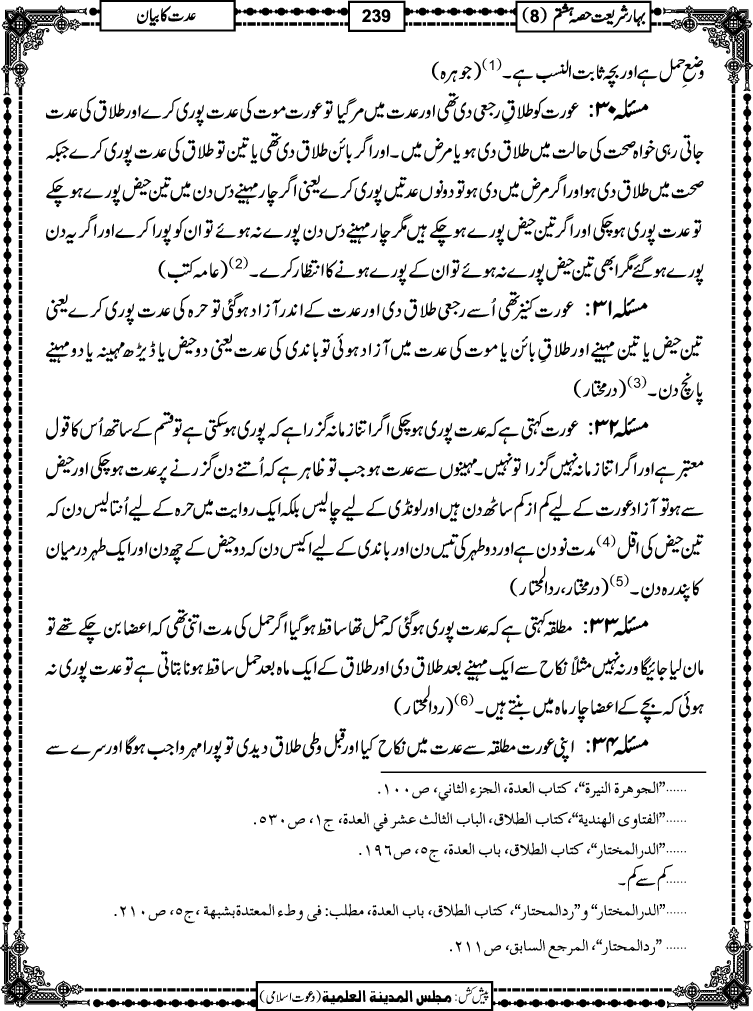 بہار شریعت حصہ ہشتم (8)
239
عدت کا بیان
وضعِ حمل ہے اور بچہ ثابت النسب ہے۔(1) (جوہرہ)
مسئلہ ۳۰: عورت کو طلاقِ رجعی دی تھی اور عدت میں مرگیا تو عورت موت کی عدت پوری کرے اور طلاق کی عدت
جاتی رہی خواہ صحت کی حالت میں طلاق دی ہو یا مرض میں۔ اور اگر بائن طلاق دی تھی یا تین تو طلاق کی عدت پوری کرے جبکہ
صحت میں طلاق دی ہو اور اگر مرض میں دی ہو تو دونوں عدتیں پوری کرے یعنی اگر چار مہینے دس دن میں تین حیض پورے ہوچکے
تو عدت پوری ہوچکی اور اگر تین حیض پورے ہوچکے ہیں مگر چار مہینے دس دن پورے نہ ہوئے تو ان کو پورا کرے اور اگر یہ دن
پورے ہوگئے مگر ابھی تین حیض پورے نہ ہوئے تو ان کے پورے ہونے کا انتظار کرے۔(2) (عامہ کتب)
مسئلہ ۳۱: عورت کنیز تھی اُسے رجعی طلاق دی اور عدت کے اندر آزاد ہوگئی تو حرہ کی عدت پوری کرے یعنی
تین حیض یا تین مہینے اور طلاقِ بائن یا موت کی عدت میں آزاد ہوئی تو باندی کی عدت یعنی دو حیض یا ڈیڑھ مہینہ یا دو مہینے
پانچ دن۔(3) (درمختار)
مسئلہ ۳۲: عورت کہتی ہے کہ عدت پوری ہوچکی اگر اتنا زمانہ گزرا ہے کہ پوری ہوسکتی ہے تو قسم کے ساتھ اُس کا قول
معتبر ہے اور اگر اتنا زمانہ نہیں گزرا تو نہیں۔ مہینوں سے عدت ہو جب تو ظاہر ہے کہ اُتنے دن گزرنے پر عدت ہوچکی اور حیض
سے ہو تو آزاد عورت کے لیے کم از کم ساٹھ دن ہیں اور لونڈی کے لیے چالیس بلکہ ایک روایت میں حرہ کے لیے اُنتالیس دن کہ
تین حیض کی اقل(4) مدت نو دن ہے اور دو طہر کی تیس دن اور باندی کے لیے اکیس دن کہ دو حیض کے چھ دن اور ایک طہر درمیان
کا پندرہ دن۔(5) (درمختار، ردالمحتار)
مسئلہ ۳۳: مطلقہ کہتی ہے کہ عدت پوری ہوگئی کہ حمل تھا ساقط ہوگیا اگر حمل کی مدت اتنی تھی کہ اعضا بن چکے تھے تو
مان لیا جائیگا ورنہ نہیں مثلاً نکاح سے ایک مہینے بعد طلاق دی اور طلاق کے ایک ماہ بعد حمل ساقط ہونا بتاتی ہے تو عدت پوری نہ
ہوئی کہ بچے کے اعضا چار ماہ میں بنتے ہیں۔(6) (ردالمحتار)
مسئلہ ۳۴: اپنی عورت مطلقہ سے عدت میں نکاح کیا اور قبل وطی طلاق دیدی تو پورا مہر واجب ہوگا اور سرے سے
......”الجوهرة النيرة“، كتاب العدة، الجزء الثاني، ص١٠٠.
......”الفتاوى الهندية“،كتاب الطلاق، الباب الثالث عشر في العدة، ج١، ص٥٣٠.
......”الدرالمختار“، كتاب الطلاق، باب العدة، ج٥، ص١٩٦.
......کم سے کم۔
......”الدرالمختار“ و”ردالمحتار“، كتاب الطلاق، باب العدة، مطلب: فى وطء المعتدة بشبهة ،ج٥، ص٢١٠.
...... ”ردالمحتار“، المرجع السابق، ص٢١١.
پیش کش: مجلس المدينة العلمية (دعوت اسلامی)